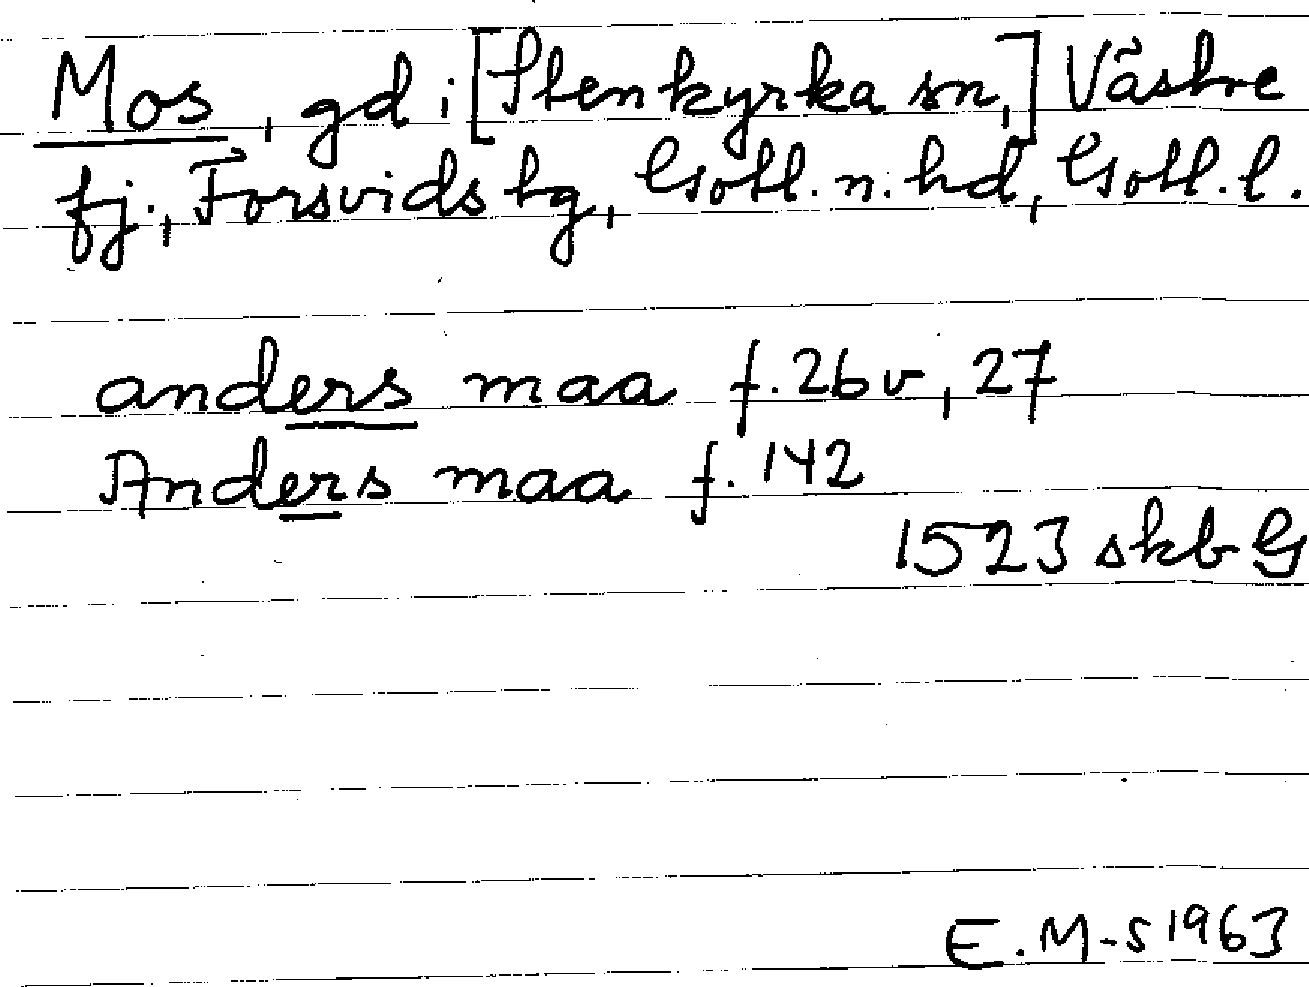 Mos, gd i [Stenkyrka sn,] Västre
fj., Forsvids tg, Gotl. n. hd, Gotl. l.
anders maa f. 26 v, 27
Anders maa f. 142
1523 skb G
E. M-S 1963